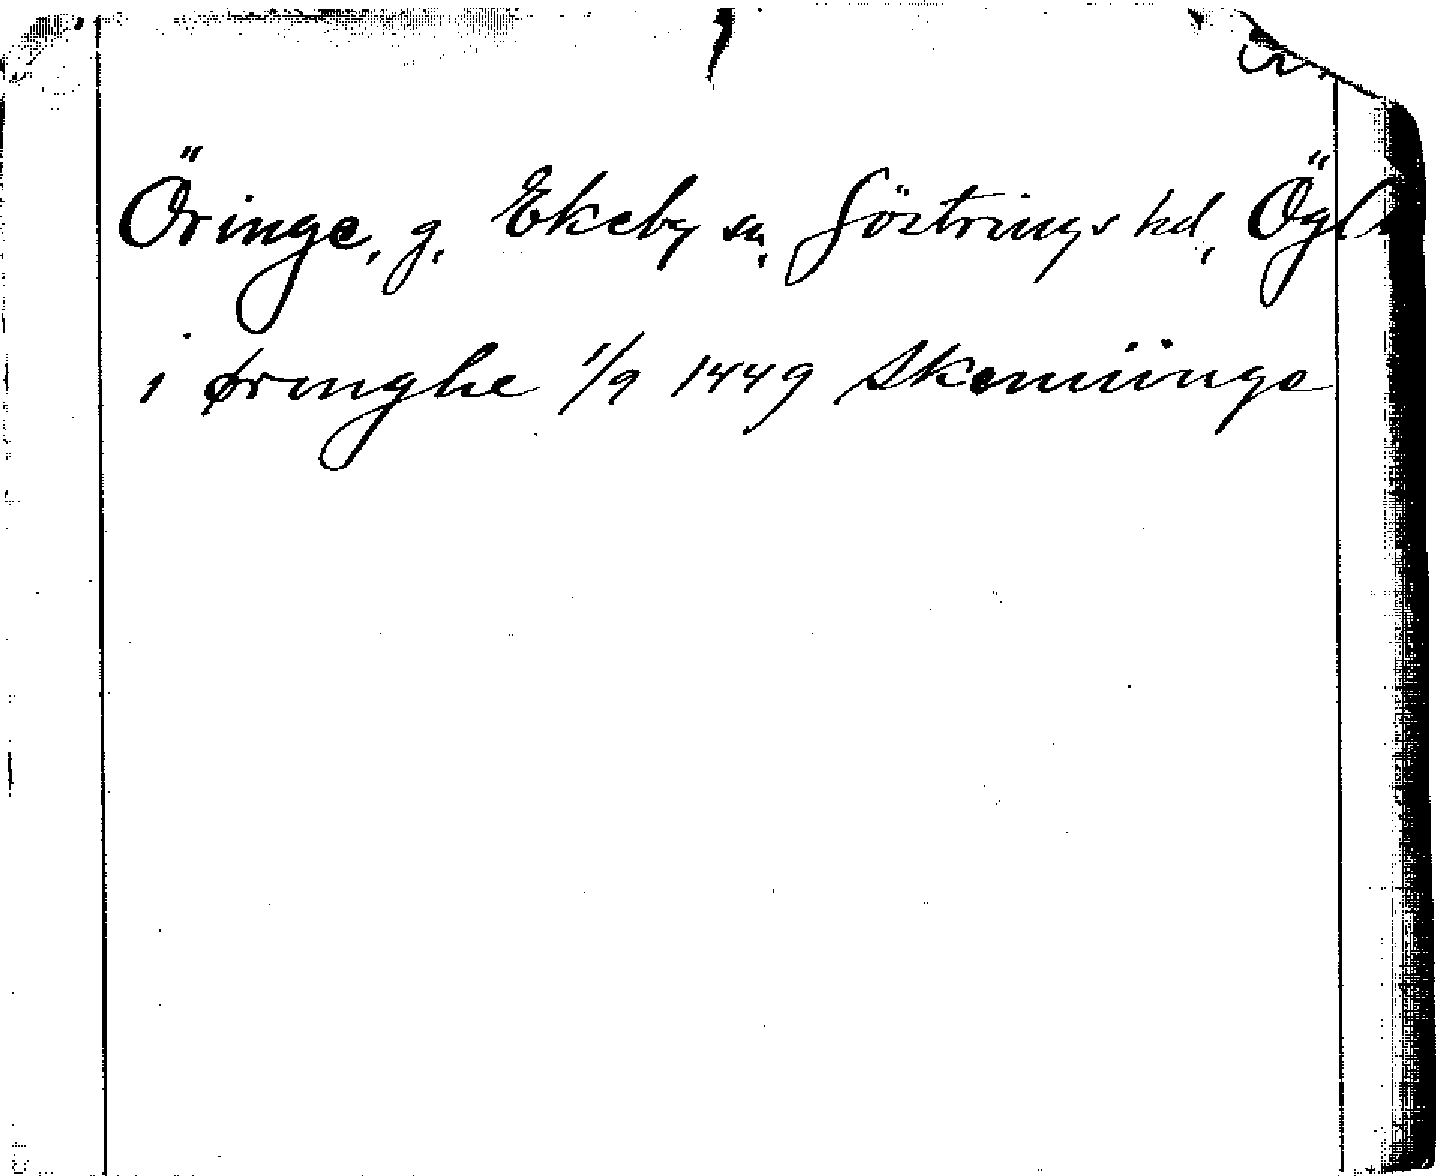 Öringe, g. Ekeby sn, Göstrings hd, Ögl
i øringhe 1/9 1449 Skenninge